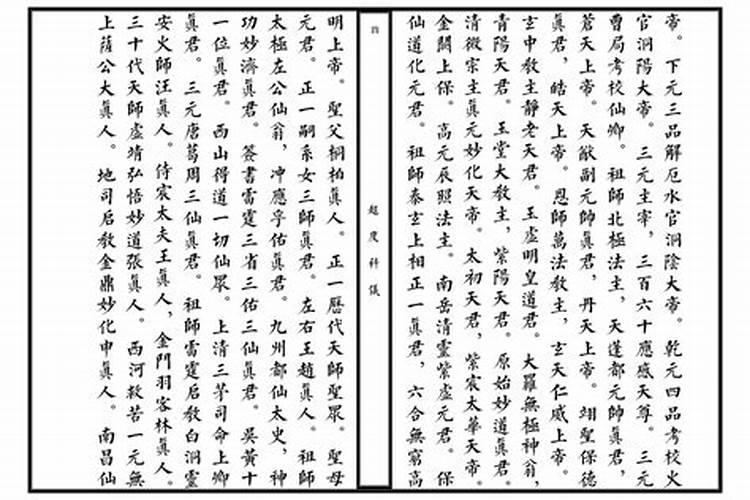 帝。下元三品解厄水官洞陰大帝。乾元四品考校火
官洞陽大帝。三元主宰，三百六十應感天尊。三元
曹局考校仙卿。祖師北極法主，天蓬都元帥眞君，
蒼天上帝。天猷副元帥眞君，丹天上帝。翊聖保德
眞君，皓天上帝。恩師萬法教主，玄天仁威上帝。
玄中教主靜老天君。玉虛明皇道君。大羅無極神翁，
青陽天君。玉堂大教主，紫陽天君。原始妙道眞君。
清微宗主眞元妙化天帝。太初天君，紫宸太華天帝。
金闕上保。高元辰照法主。南岳清靈紫虛元君。保
仙道化元君。祖師泰玄上相正一眞君，六合無窮高
超度科儀
四
明上帝。聖父桐柏眞人。正一曆代天師聖眾。聖母
元君。正一嗣系女三師眞君。左右王趙眞人。祖師
太極左公仙翁，冲應孚佑眞君。九州都仙太史，神
功妙濟眞君。簽書雷霆三省三佑三仙眞君。吳黃十
一位眞君。西山得道一切仙眾。上清三茅司命上卿
眞君。三元唐葛周三仙眞君。祖師雷霆启教白洞靈
安火師汪眞人。侍宸太夫王眞人，金門羽客林眞人。
三十代天師虛靖弘悟妙道張眞人。西河救苦一元無
上薩公大眞人。地司启教金鼎妙化申眞人。南昌仙